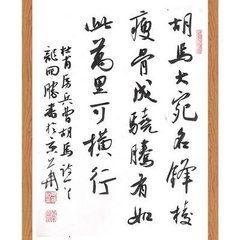 胡馬大宛名鋒棱
瘦骨成驍騰有如
此萬里可橫行
杜甫房兵曹胡馬詩
勝書於京